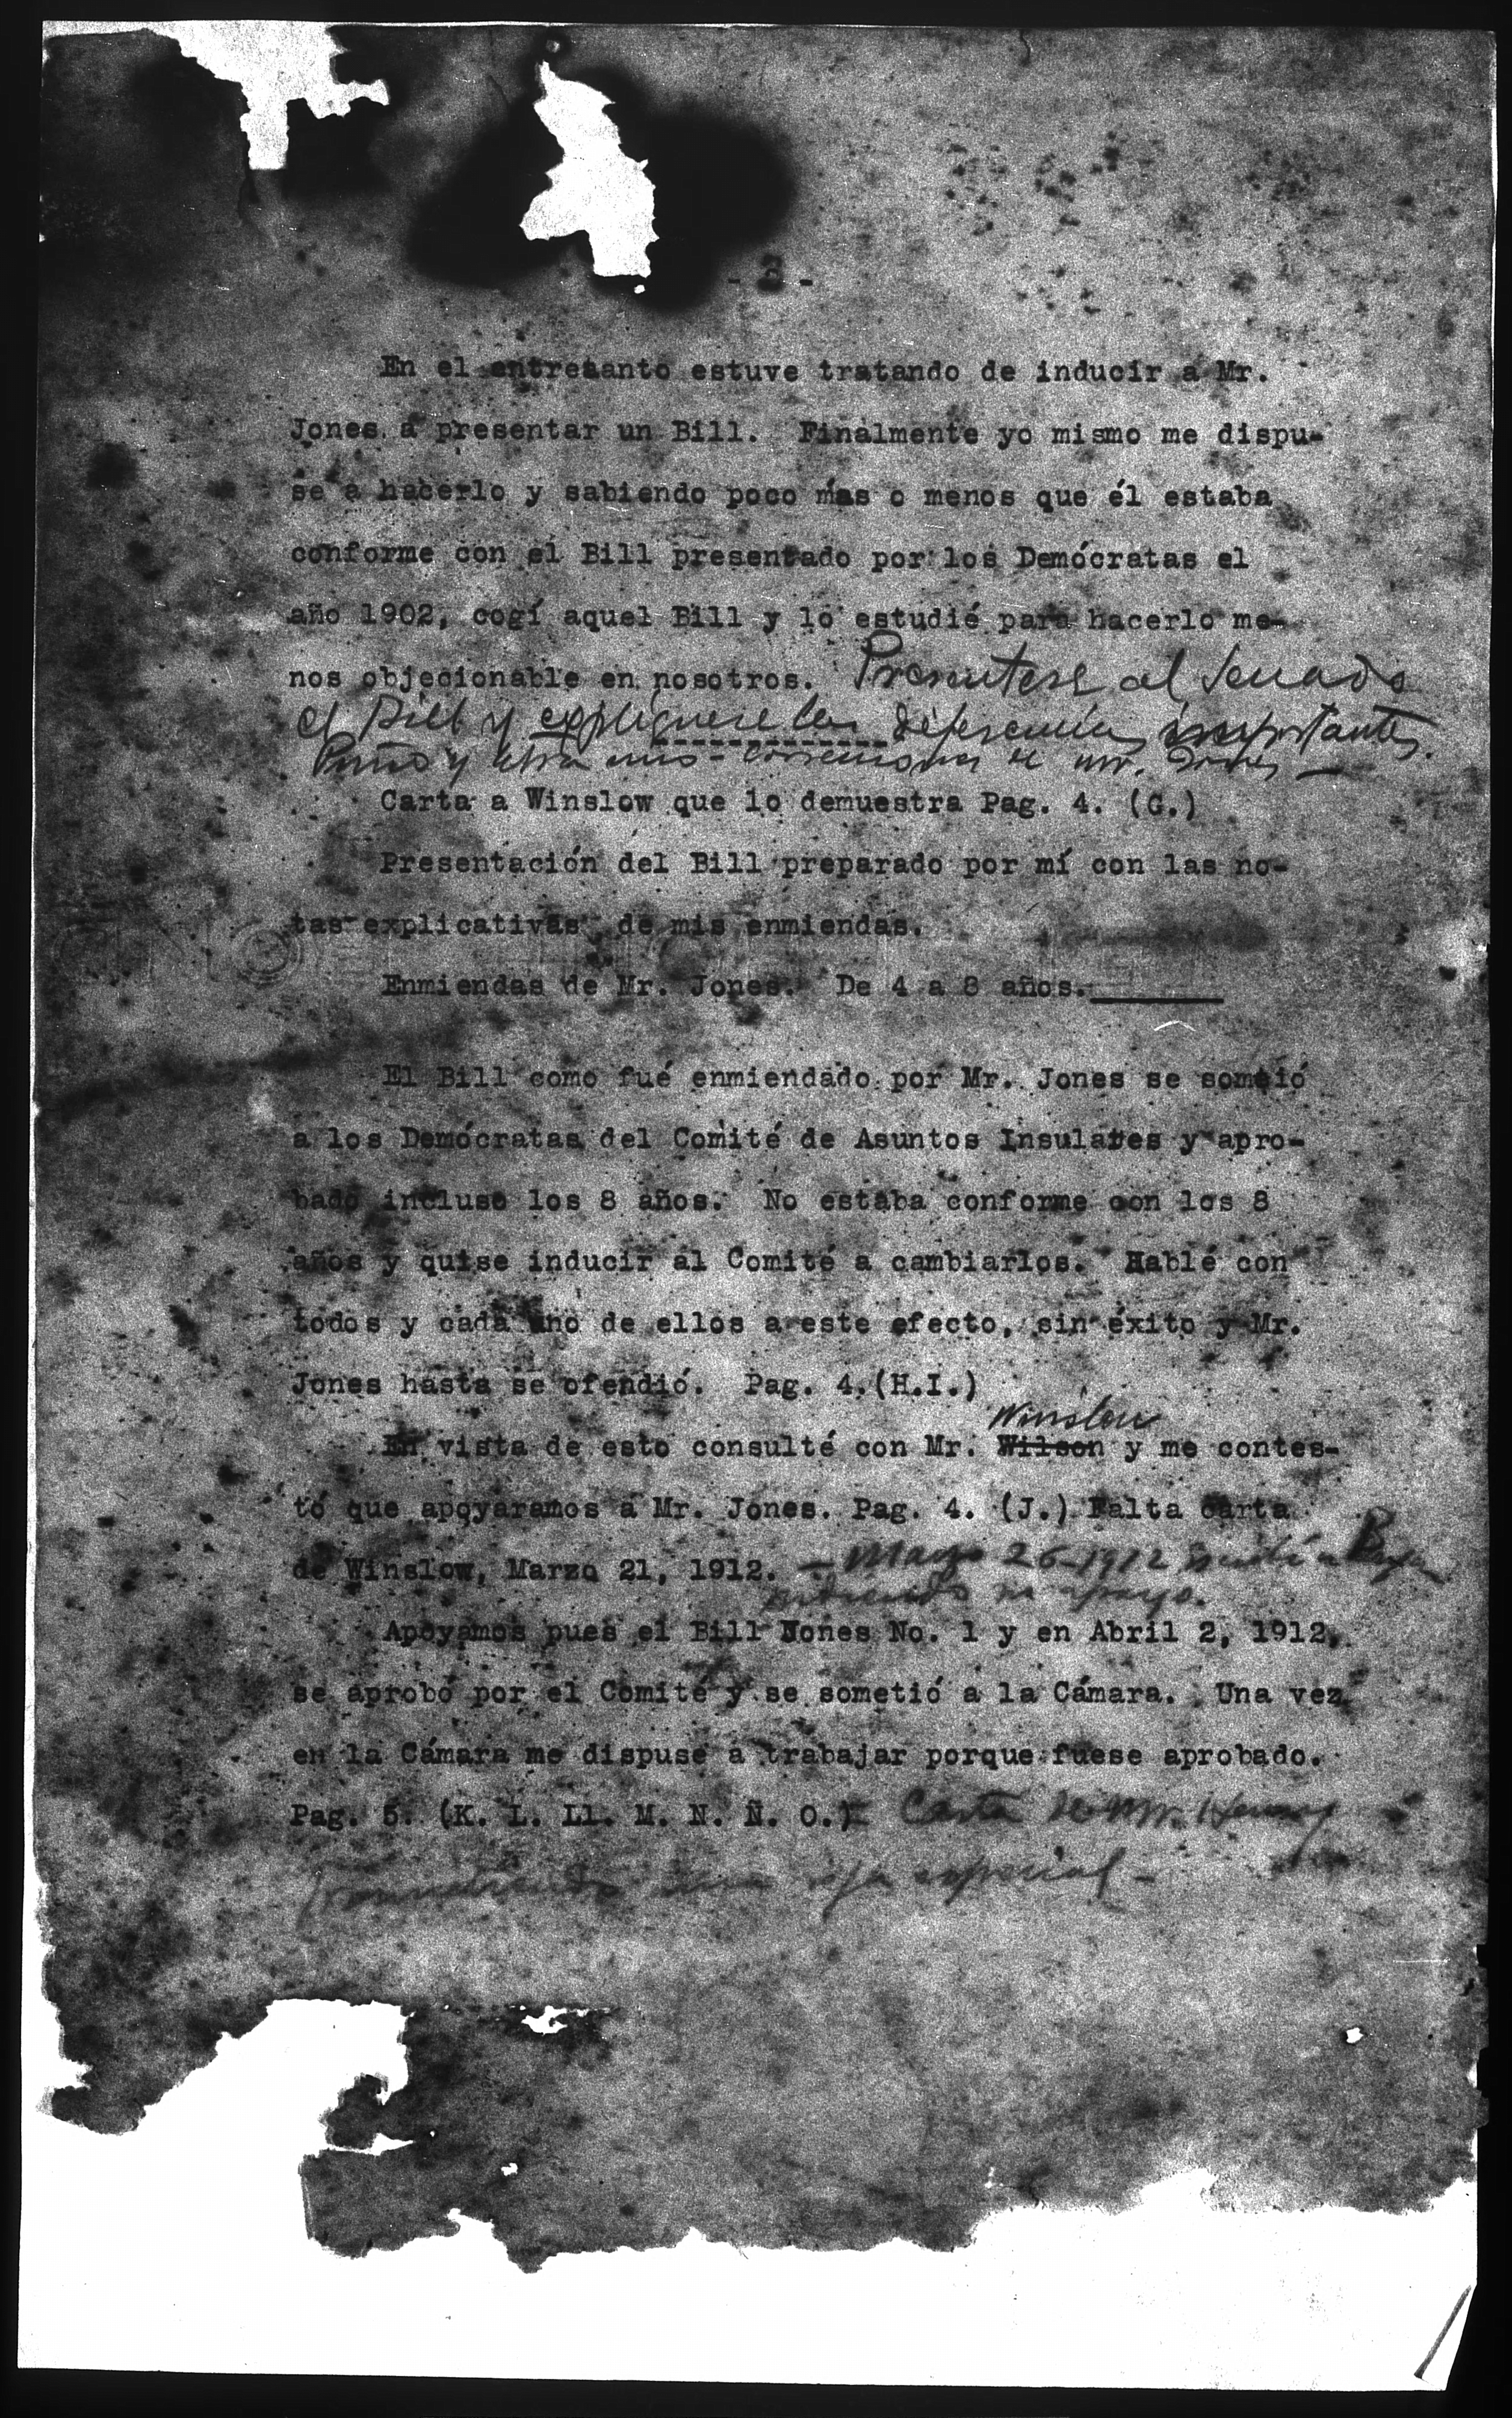 - 3 -
En el entretanto estuve tratando de inducir a Mr.
Jones a presentar un Bill. Finalmente yo mismo me dispu-
se a hacerlo y sabiendo poco mas o menos que él estaba
conforme con el Bill presentado por los Demócratas el
año 1902, cogí aquel Bill y lo estudié para hacerlo me-
nos objecionable en nosotros. Presentese al Senado
el Bill y expliquese las diferencias importantes.
Puño y letra mis correcciones de Mr. Jones —
Carta a Winslow que lo demuestra Pag. 4. (G.)
Presentación del Bill preparado por mí con las no-
tas explicativas de mis enmiendas.
Enmiendas de Mr. Jones. De 4 a 8 años.
El Bill como fué enmiendado por Mr. Jones se sometió
a los Demócratas del Comité de Asuntos Insulares y apro-
bado incluso los 8 años. No estaba conforme con los 8
años y quise inducir al Comité a cambiarlos. Hablé con
todos y cada uno de ellos a este efecto, sin éxito y Mr.
Jones hasta se ofendió. Pag. 4.(H.I.)
Winslow
En vista de esto consulté con Mr. Wilson y me contes-
tó que apoyaramos a Mr. Jones. Pag. 4. (J.) Falta carta
de Winslow, Marzo 21, 1912. — Marzo 26-1912
pidiendo su apoyo.
Apoyamos pues el Bill Jones No. 1 y en Abril 2, 1912,
se aprobó por el Comité y se sometió a la Cámara. Una vez
en la Cámara me dispuse a trabajar porque fuese aprobado.
Pag. 5. (K. L. Ll. M. N. Ñ. O.) Carta de Mr. Henry
una especial -